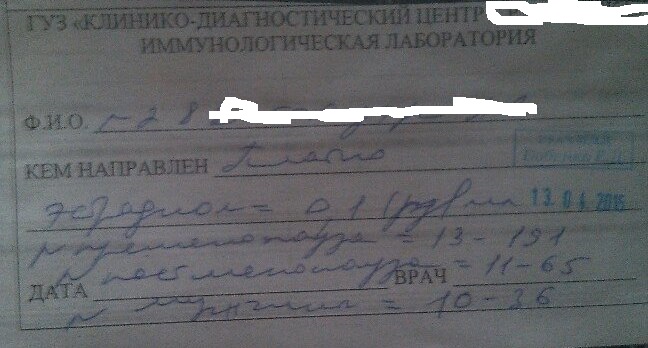 ГУЗ «КЛИНИКО-ДИАГНОСТИЧЕСКИЙ ЦЕНТР
ИММУНОЛОГИЧЕСКАЯ ЛАБОРАТОРИЯ
Ф.И.О. 28
КЕМ НАПРАВЛЕН Платно
Эстрадиол = 0,1 13 0 2015
N пременопауза = 13-191
N постменопауза = 11-65
ДАТА ВРАЧ
N мужчины = 10-36